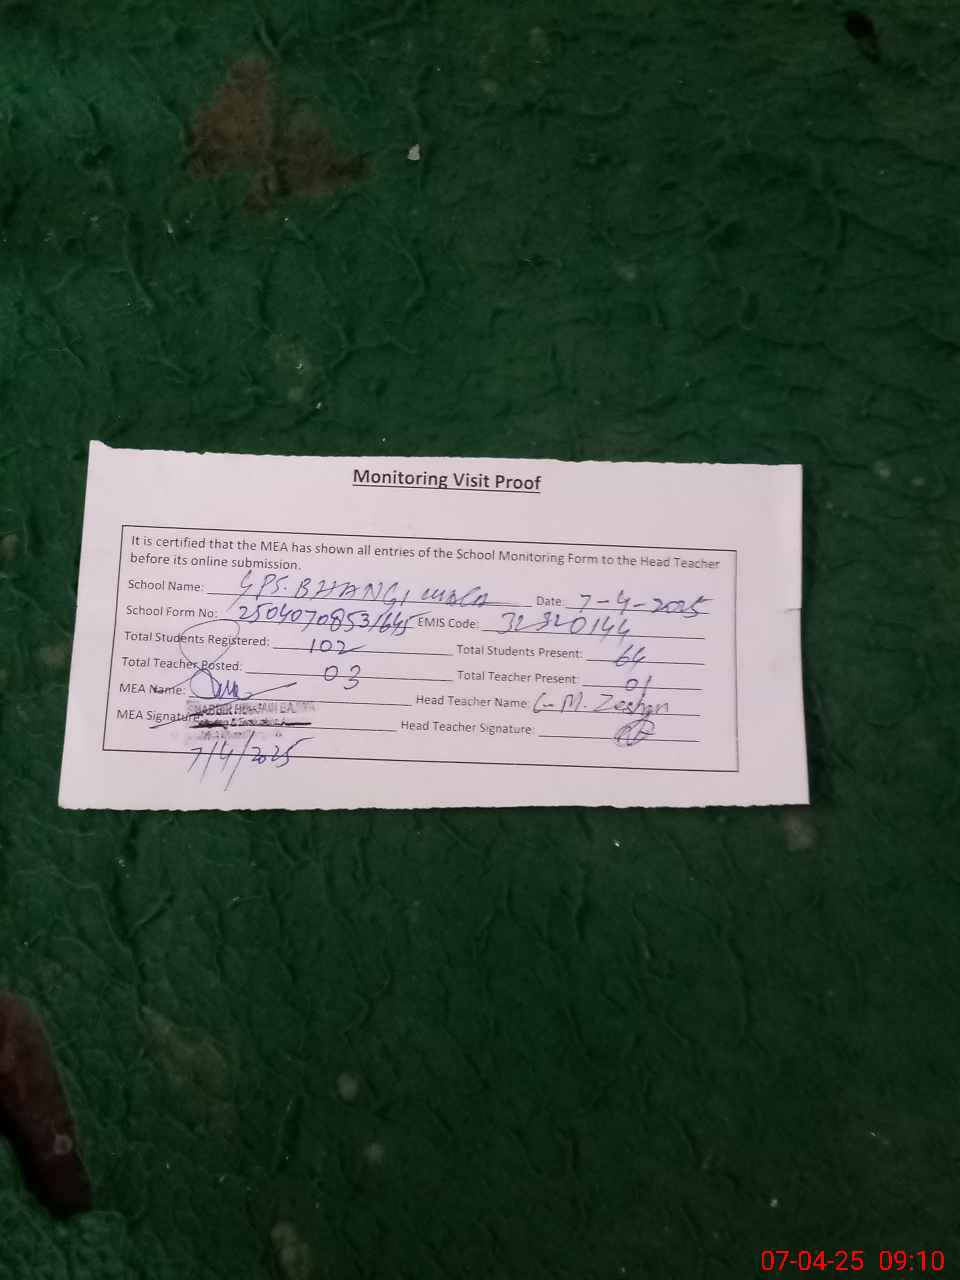 Monitoring Visit Proof
It is certified that the MEA has shown all entries of the School Monitoring Form to the Head Teacher
before its online submission.
School Name: GPS. BHANGI WALA Date: 7-4-2025
School Form No: 2504070853/645 EMIS Code: 32320144
Total Students Registered: 102 Total Students Present: 64
Total Teacher Posted: 03 Total Teacher Present: 01
MEA Name: Head Teacher Name: G. M. Zeshan
SHABBIR HUSSAIN BAJWA
MEA Signature: Head Teacher Signature:
7/4/2025
07-04-25 09:10